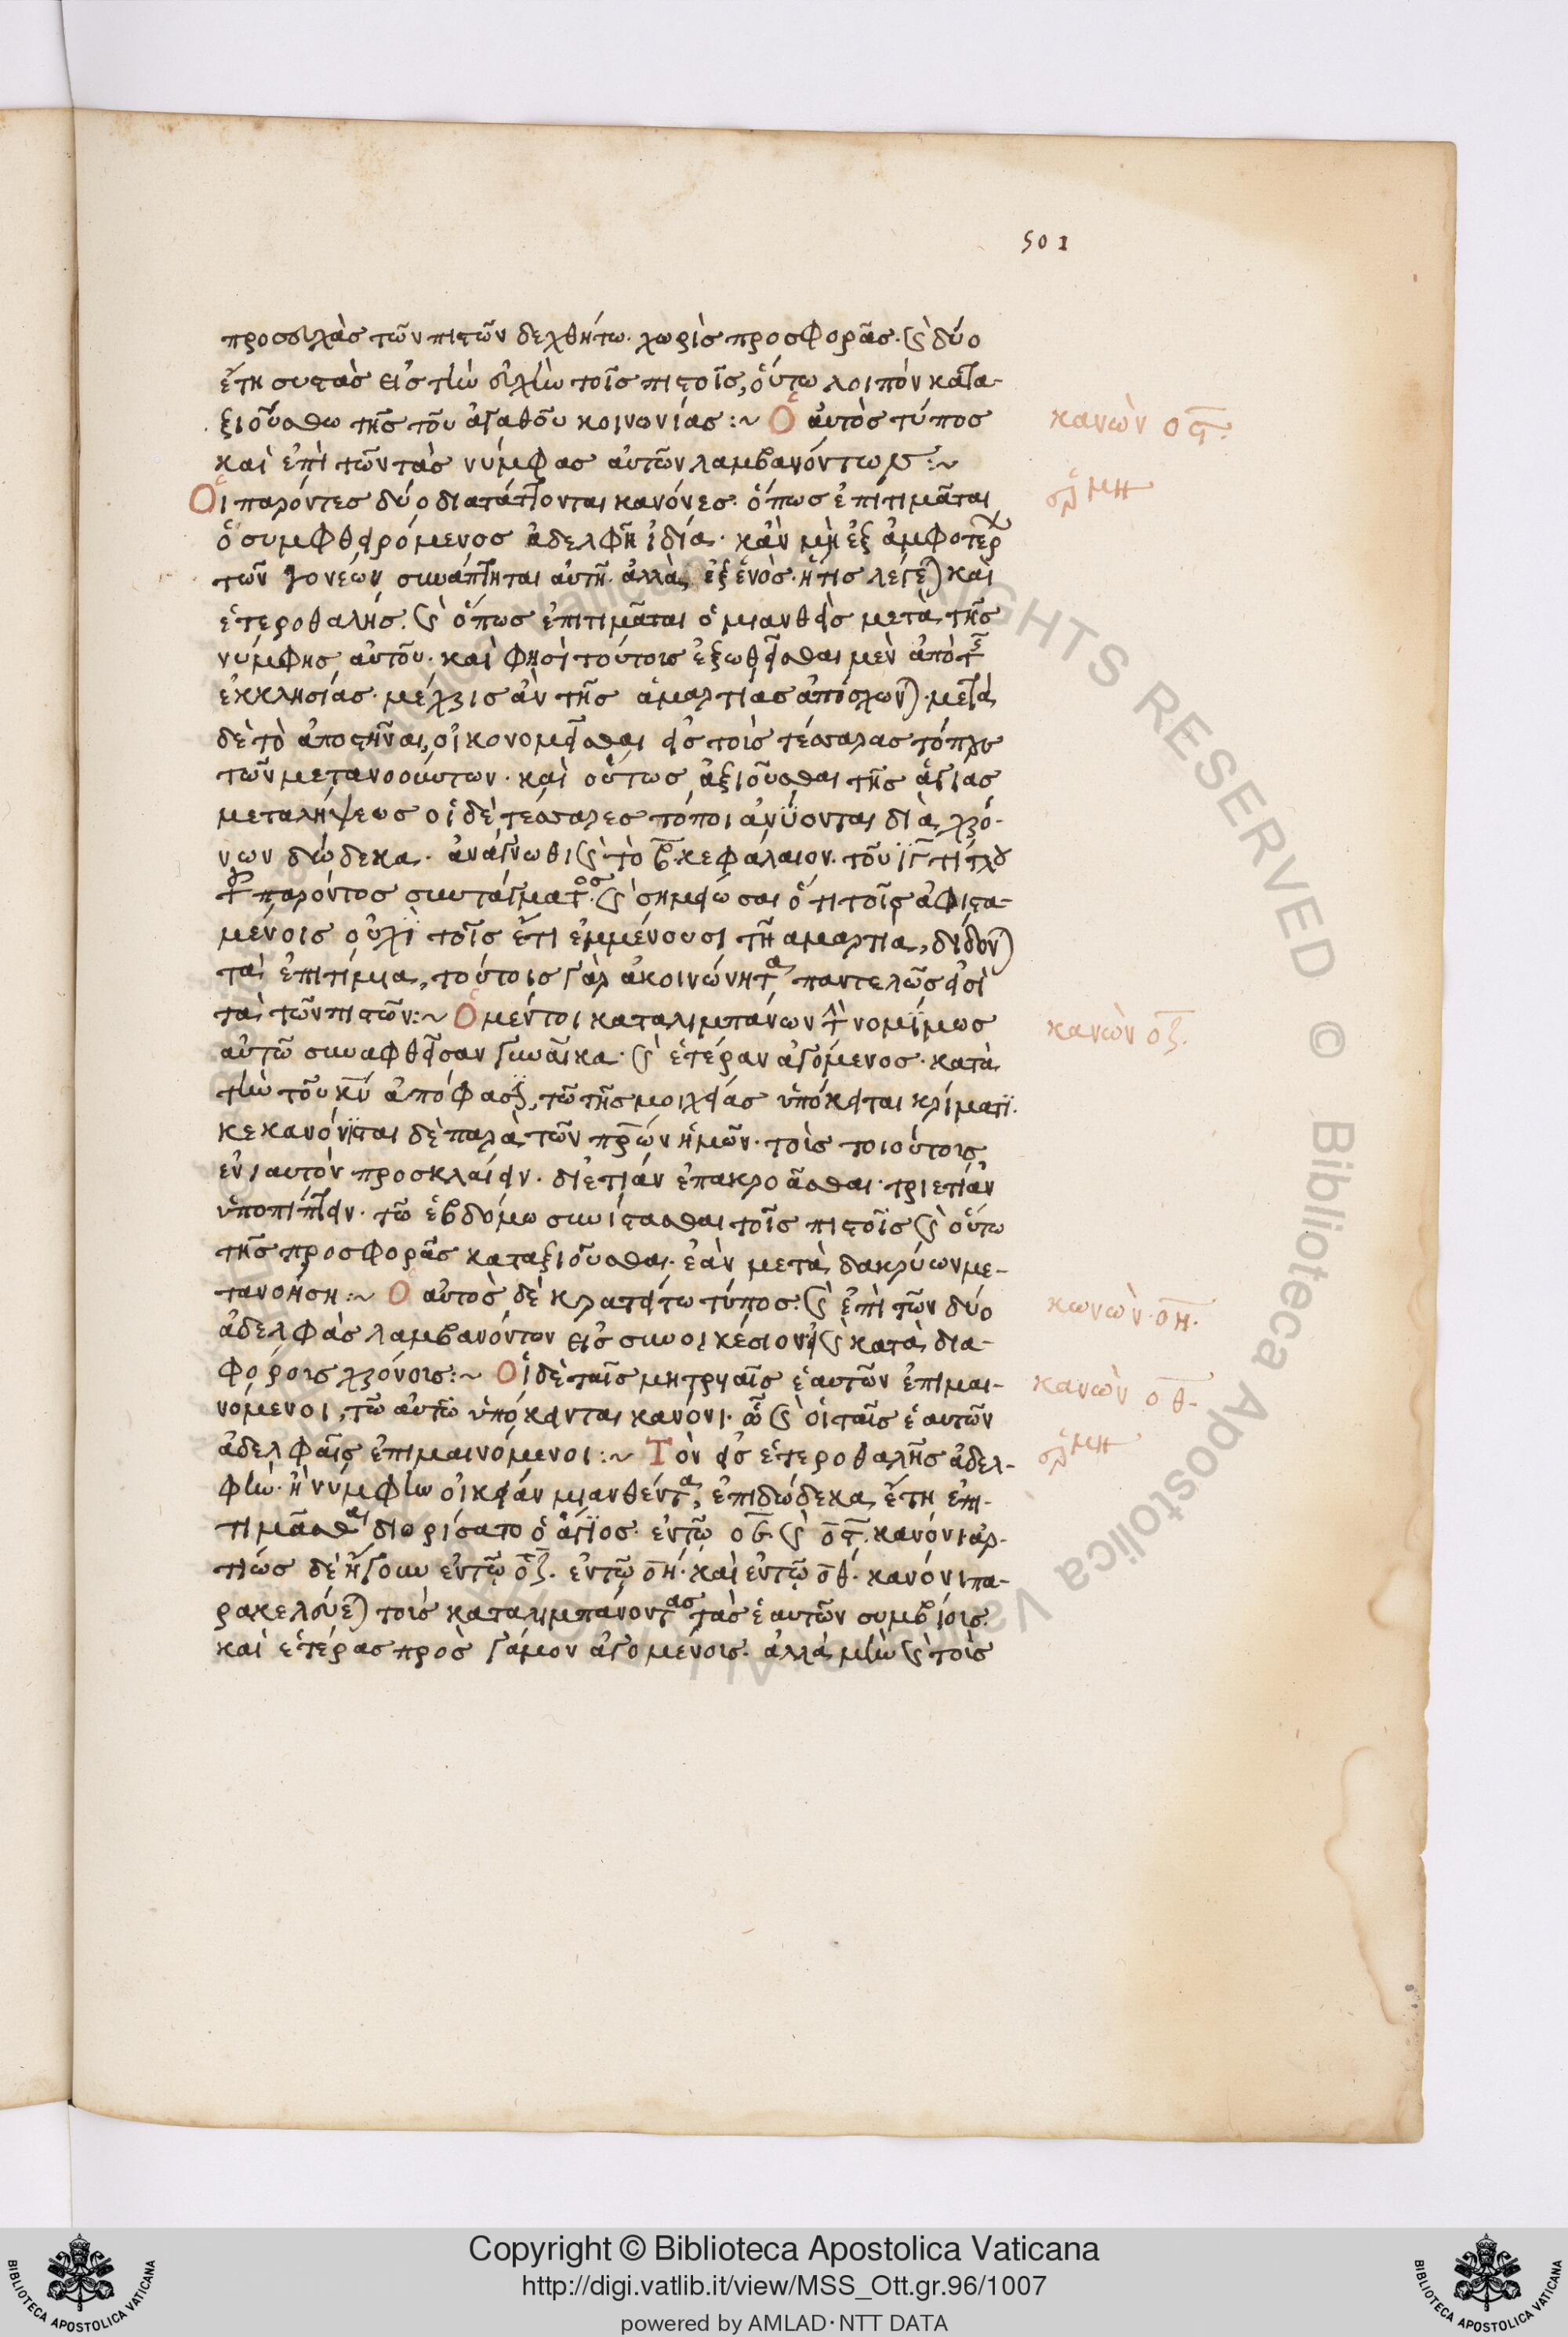 501
προσευχὰς τῶν πιστῶν δεχθήτω· χωρὶς προσφορᾶς· καὶ δύο
ἔτη συστὰς εἰς τὴν εὐχὴν τοῖς πιστοῖς, οὕτω λοιπὸν κατα-
ξιούσθω τῆς τοῦ ἀγαθοῦ κοινωνίας :~ Ὁ αὐτὸς τύπος
κανὼν ος.
καὶ ἐπὶ τῶν τὰς νύμφας αὐτῶν λαμβανόντων :~
Οἱ παρόντες δύο διατάττονται κανόνες· ὅπως ἐπιτιμᾶται
ἑρμη
ὁ συμφθειρόμενος ἀδελφῆ ἰδία· κἂν μὴ ἐξ ἀμφοτέρων
τῶν γονέων συνάπτηται αὐτῆ· ἀλλὰ ἐξ ἑνὸς· ἥτις λέγεται καὶ
ἑτεροθαλής· καὶ ὅπως ἐπιτιμᾶται ὁ μιανθεὶς μετὰ τῆς
νύμφης αὐτοῦ· καὶ φησὶ τούτοις ἐξωθεῖσθαι μὲν ἀπὸ τῆς
ἐκκλησίας· μέχρις ἂν τῆς ἁμαρτίας ἀπόσχωνται· μετὰ
δὲ τὸ ἀποστῆναι, οἰκονομεῖσθαι εἰς τοὶς τέσσαρας τόπους
τῶν μετανοούντων· καὶ οὕτως ἀξιοῦσθαι τῆς ἁγίας
μεταλήψεως οἱ δὲ τέσσαρες τόποι ἀνύονται διὰ χρό-
νων δώδεκα· ἀνάγνωθι καὶ τὸ β κεφάλαιον· τοῦ ιγ τίτλου
τοῦ παρόντος συντάγματος· καὶ σημείωσαι ὅτι τοῖς ἀφιστα-
μένοις οὐχὶ τοῖς ἔτι ἐμμένουσι τῆ αμαρτία, δίδονται
τὰ ἐπιτίμια, τούτοις γὰρ ἀκοινώνητα παντελῶς εἰσὶ
τὰ τῶν πιστῶν :~ Ὁ μέντοι καταλιμπάνων τὴν νομίμως
κανὼν οζ.
αὐτῶ συναφθεῖσαν γυναῖκα· καὶ ἑτέραν ἀγόμενος· κατὰ
τὴν τοῦ κυ ἀπόφασιν, τῶ τῆς μοιχείας ὑπόκειται κρίματι.
κεκανόνισται δὲ παρὰ τῶν πρων ἡμῶν· τοὶς τοιούτοις
ἐνιαυτὸν προσκλαίειν· διετίαν ἐπακροᾶσθαι· τριετίαν
ὑποπίπτειν· τῶ ἑβδόμω συνίστασθαι τοῖς πιστοῖς καὶ οὕτω
τῆς προσφορᾶς καταξιοῦσθαι· ἐὰν μετὰ δακρύων με-
τανοήση :~ Ὁ αὐτὸς δὲ κρατείτω τύπος· καὶ ἐπὶ τῶν δύο
κωνὼν· οη·
ἀδελφὰς λαμβανόντων εἰς συνοικέσιον εἰ καὶ κατὰ δια-
φόροις χρόνοις :~ Οἱ δὲ ταῖς μητρυαῖς ἑαυτῶν ἐπιμαι-
κανὼν οθ·
νόμενοι, τῶ αὐτῶ ὑπόκεινται κανόνι· ὧ καὶ οἱ ταῖς ἑαυτῶν
ἀδελφαῖς ἐπιμαινόμενοι :~ Τὸν εἰς ἑτεροθαλῆς ἀδελ-
ἑρμη
φὴν· ἢ νύμφην οἰκείαν μιανθέντα, ἐπὶ δώδεκα ἔτη ἐπι-
τιμᾶσθαι διορίσατο ὁ ἅγιος· ἐν τῶ οε· καὶ ος· κανόνι ἀρ-
τίως δὲ ἤγουν ἐν τῶ οζ· ἐν τῶ οη· καὶ ἐν τῶ οθ· κανόνι πα-
ρακελεύεται τοὶς καταλιμπάνοντας τὰς ἑαυτῶν συμβίοις
καὶ ἑτέρας πρὸς γάμον ἀγομένοις· ἀλλὰ μὴν καὶ τοὶς
Copyright © Biblioteca Apostolica Vaticana
http://digi.vatlib.it/view/MSS_Ott.gr.96/1007
powered by AMLAD·NTT DATA